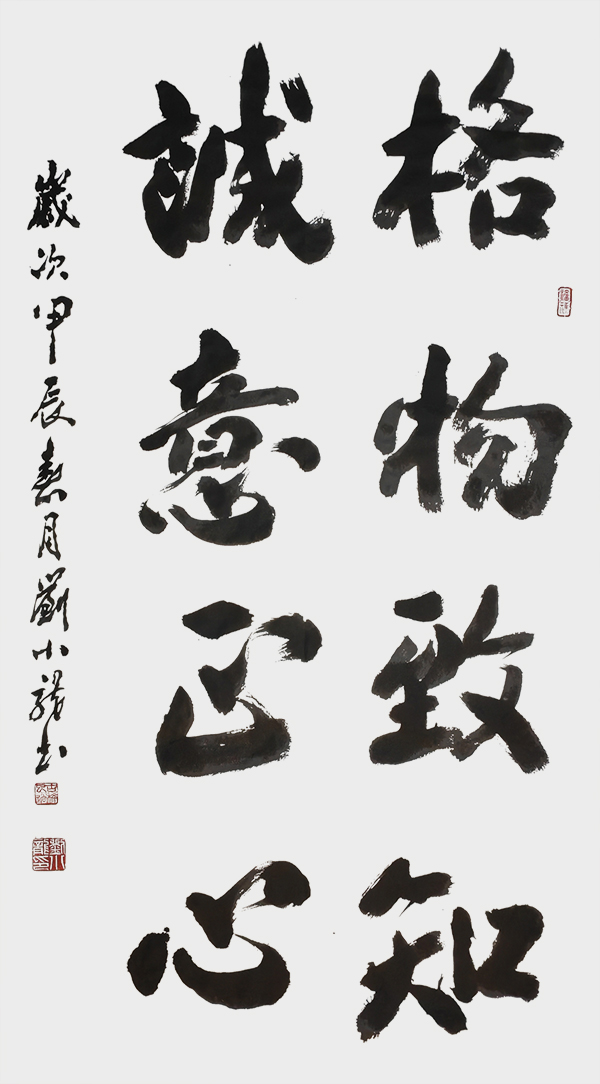 格物致知
誠意正心
歲次甲辰月劉小龍書
劉小龍印